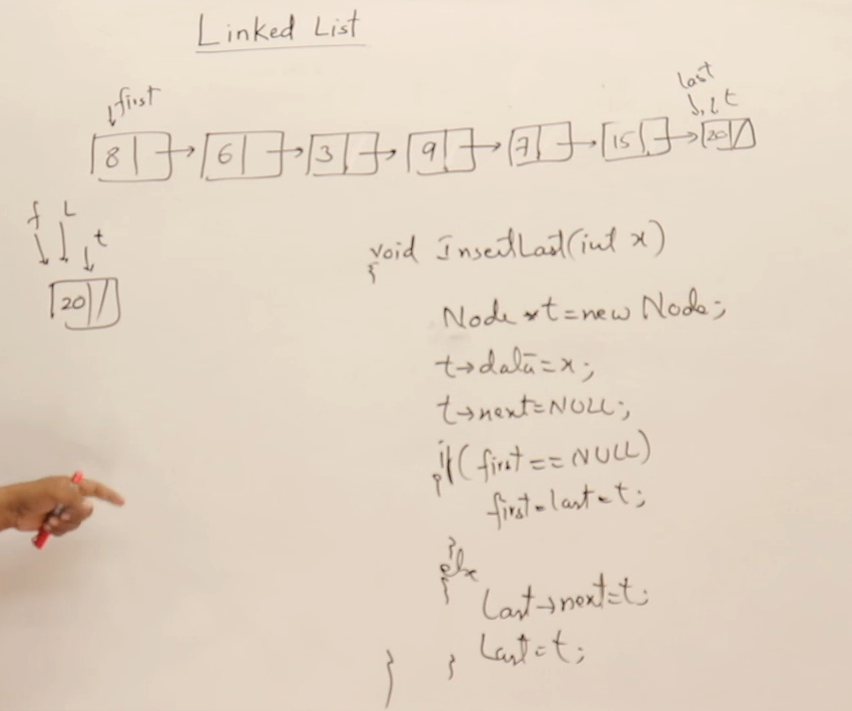 Linked List
first
last
t
8 6 3 9 7 15 20
f L
t
20
void InsertLast(int x)
{
Node *t=new Node;
t→data=x;
t→next=NULL;
if(first==NULL)
{
first=last=t;
}
else
{
Last→next=t;
Last=t;
}
}